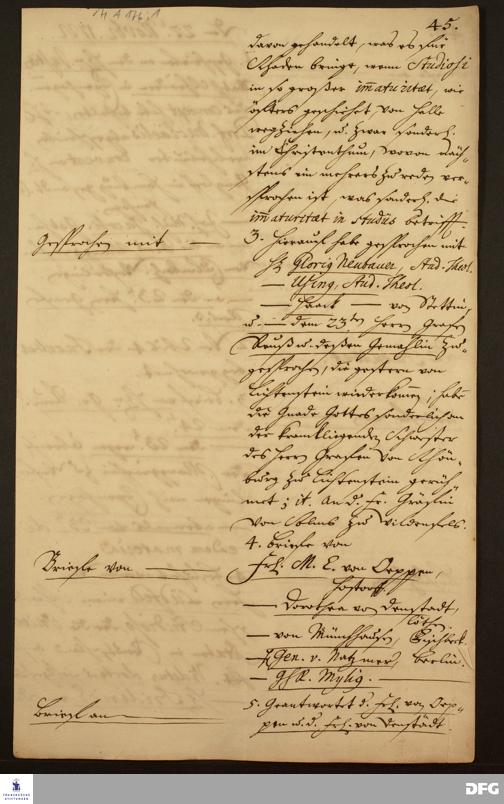 45.
davon gehandelt, was es für
Schaden bringe, wenn Studiosi
in so großer im̄aturitæt, wie
öffters geschiehet, von Halle
wegziehen, u. zwar sonderl.
im Christenthum, wovon näch-
stens ein mehrers zu reden ver-
sprochen ist, was sonderl. die
im̄aturitæt in studiis betrifft.
Gesprochen mit —
3. Hierauf habe gesprochen mit
H. Glorig Neubauer, Stud. Theol.
— Ufing, Stud. Theol.
— Haack — von Stettin,
u. — dem 23ten Herrn Grafen
Reuß u. deßen Gemahlin zu-
gesprochen, die gestern von
Lichtenstein wiederkom̄en; habe
die Gnade Gottes sonderlich an
der kranckliegenden Schwester
des Herrn Grafen von Schön-
burg zu Lichtenstein gerüh-
met; it. an d. Fr. Gräfin
von Solms zu Wildenfels.
Briefe von —
4. Briefe von
Frl. M. E. von Oeppen,
— Dorothea von Denstädt,
Cöthen.
— von Münchhausen, Fischbeck.
— Gen. v. Natzmer, Berlin.
— GhR. Mylig.
Brief an
5. Geantwortet d. Frl. von Oep-
pen u. d. Frl. von Denstädt
FRANCKESCHE STIFTUNGEN
DFG